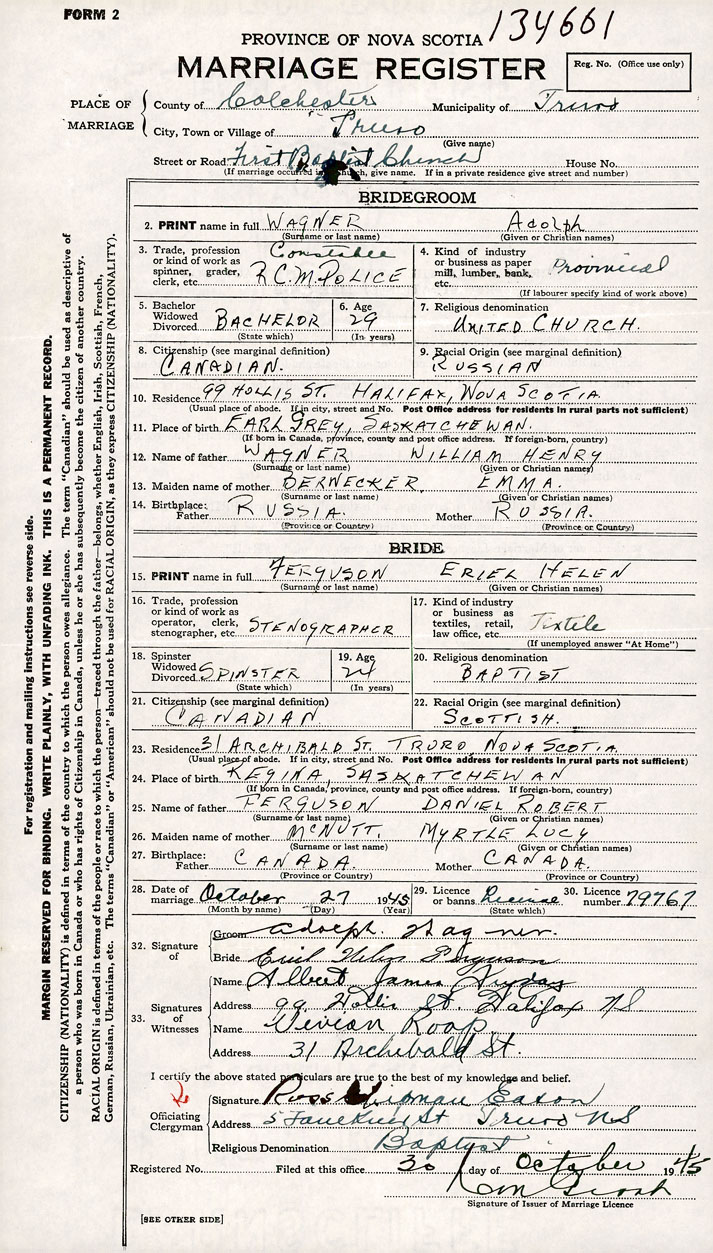 FORM 2
134661
PROVINCE OF NOVA SCOTIA
MARRIAGE REGISTER
Reg. No. (Office use only)
PLACE OF MARRIAGE
County of Colchester Municipality of Truro
City, Town or Village of Truro
(Give name)
Street or Road First Baptist Church House No.
(If marriage occurred in church, give name. If in a private residence give street and number)
BRIDEGROOM
2. PRINT name in full WAGNER Adolph
(Surname or last name) (Given or Christian names)
3. Trade, profession or kind of work as spinner, grader, clerk, etc. Constable R.C.M. POLICE
4. Kind of industry or business as paper mill, lumber, bank, etc. Provincial
(If labourer specify kind of work above)
5. Bachelor Widowed Divorced BACHELOR
(State which)
6. Age 29
(In years)
7. Religious denomination
UNITED CHURCH.
8. Citizenship (see marginal definition)
CANADIAN.
9. Racial Origin (see marginal definition)
RUSSIAN
10. Residence 99 HOLLIS ST. HALIFAX, NOVA SCOTIA
(Usual place of abode. If in city, street and No. Post Office address for residents in rural parts not sufficient)
11. Place of birth EARL GREY, SASKATCHEWAN.
(If born in Canada, province, county and post office address. If foreign-born, country)
12. Name of father WAGNER WILLIAM HENRY
(Surname or last name) (Given or Christian names)
13. Maiden name of mother BERNECKER, EMMA.
(Surname or last name) (Given or Christian names)
14. Birthplace: Father RUSSIA. Mother RUSSIA.
(Province or Country) (Province or Country)
BRIDE
15. PRINT name in full FERGUSON ERIEL HELEN
(Surname or last name) (Given or Christian names)
16. Trade, profession or kind of work as operator, clerk, stenographer, etc. STENOGRAPHER
17. Kind of industry or business as textiles, retail, law office, etc. Textile
(If unemployed answer "At Home")
18. Spinster Widowed Divorced SPINSTER
(State which)
19. Age 24
(In years)
20. Religious denomination
BAPTIST
21. Citizenship (see marginal definition)
CANADIAN
22. Racial Origin (see marginal definition)
SCOTTISH.
23. Residence 31 ARCHIBALD ST. TRURO, NOVA SCOTIA
(Usual place of abode. If in city, street and No. Post Office address for residents in rural parts not sufficient)
24. Place of birth REGINA, SASKATCHEWAN
(If born in Canada, province, county and post office address. If foreign-born, country)
25. Name of father FERGUSON DANIEL ROBERT
(Surname or last name) (Given or Christian names)
26. Maiden name of mother McNUTT, MYRTLE LUCY
(Surname or last name) (Given or Christian names)
27. Birthplace: Father CANADA. Mother CANADA.
(Province or Country) (Province or Country)
28. Date of marriage October 27 1945
(Month by name) (Day) (Year)
29. Licence or banns License
(State which)
30. Licence number 79767
32. Signature of
Groom Adolph Wagner.
Bride Eriel Helen Ferguson
33. Signatures of Witnesses
Name Albert James
Address 99 Hollis St. Halifax NS
Name Vivian Roop
Address 31 Archibald St.
I certify the above stated particulars are true to the best of my knowledge and belief.
Officiating Clergyman
Signature Ross Eaton
Address 5 Faulkner St Truro NS
Religious Denomination Baptist
Registered No. Filed at this office 30 day of October 1945
Signature of Issuer of Marriage Licence
[SEE OTHER SIDE]
For registration and mailing instructions see reverse side.
MARGIN RESERVED FOR BINDING. WRITE PLAINLY, WITH UNFADING INK. THIS IS A PERMANENT RECORD.
CITIZENSHIP (NATIONALITY) is defined in terms of the country to which the person owes allegiance. The term "Canadian" should be used as descriptive of
a person who was born in Canada or who has rights of Citizenship in Canada, unless he or she has subsequently become the citizen of another country.
RACIAL ORIGIN is defined in terms of the people or race to which the person—traced through the father—belongs, whether English, Irish, Scottish, French,
German, Russian, Ukrainian, etc. The terms "Canadian" or "American" should not be used for RACIAL ORIGIN, as they express CITIZENSHIP (NATIONALITY).